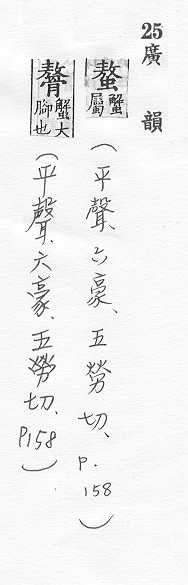 25 廣韻
螯 蟹屬 (平聲、六豪、五勞切、p.158)
䯠 蟹大腳也 (平聲、六豪、五勞切、P158)